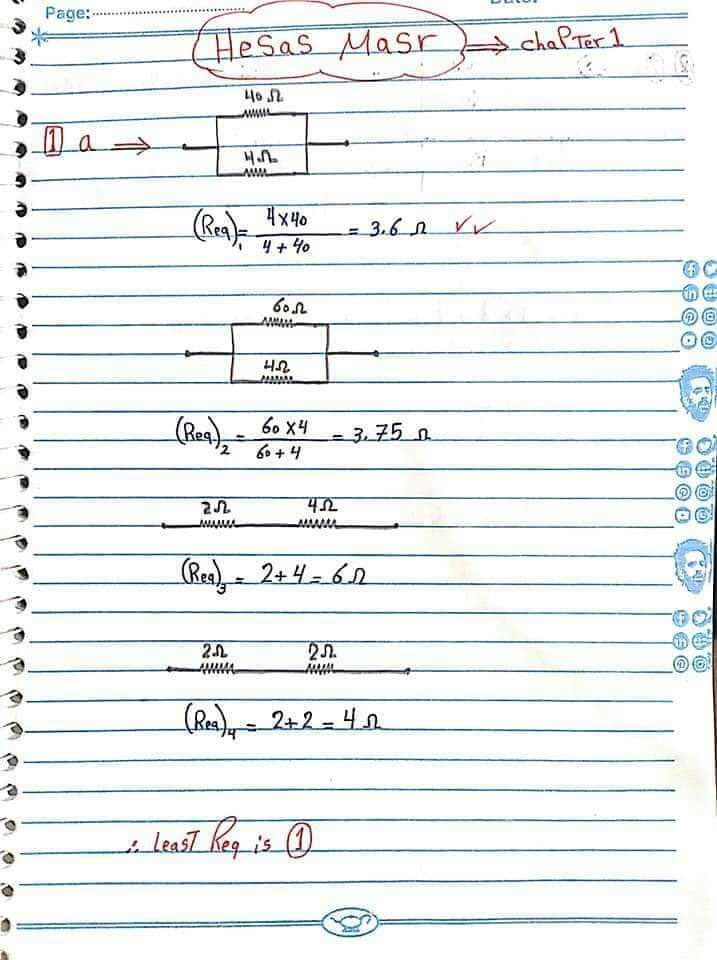 Page:
HeSaS MaSr ⇒ chapTer 1
40 Ω
1 a ⇒
4 Ω
(Req)₁ = 4 x 40 / 4 + 40 = 3.6 Ω ✓✓
60 Ω
4 Ω
(Req)₂ = 60 x 4 / 60 + 4 = 3.75 Ω
2 Ω 4 Ω
(Req)₃ = 2 + 4 = 6 Ω
2 Ω 2 Ω
(Req)₄ = 2 + 2 = 4 Ω
∴ LeasT Req is 1